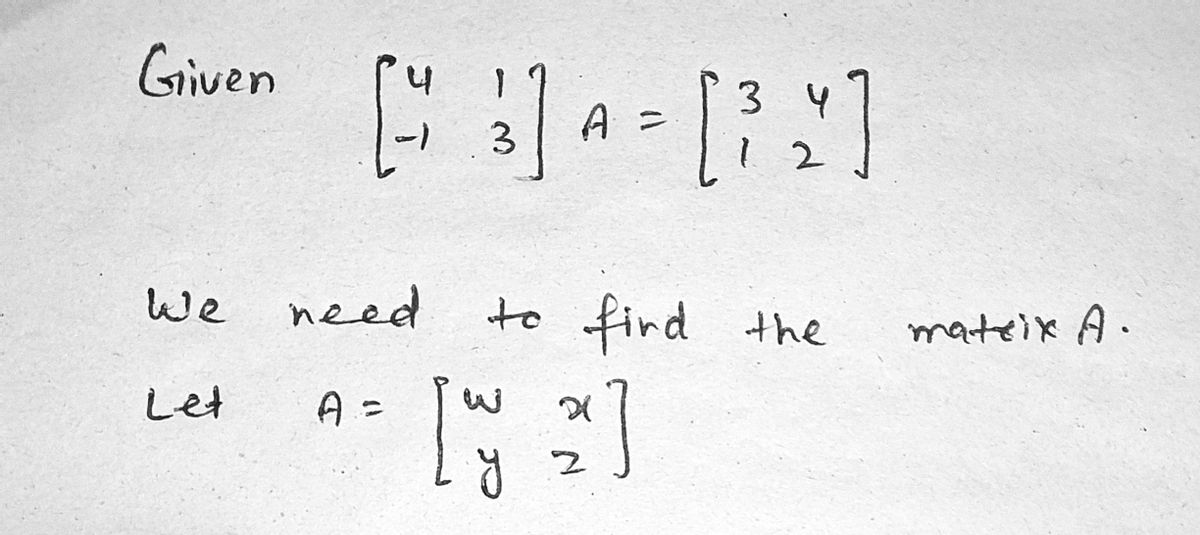 Given [4 1
-1 3] A = [3 4
1 2]
We need to find the matrix A.
Let A = [w x
y z]